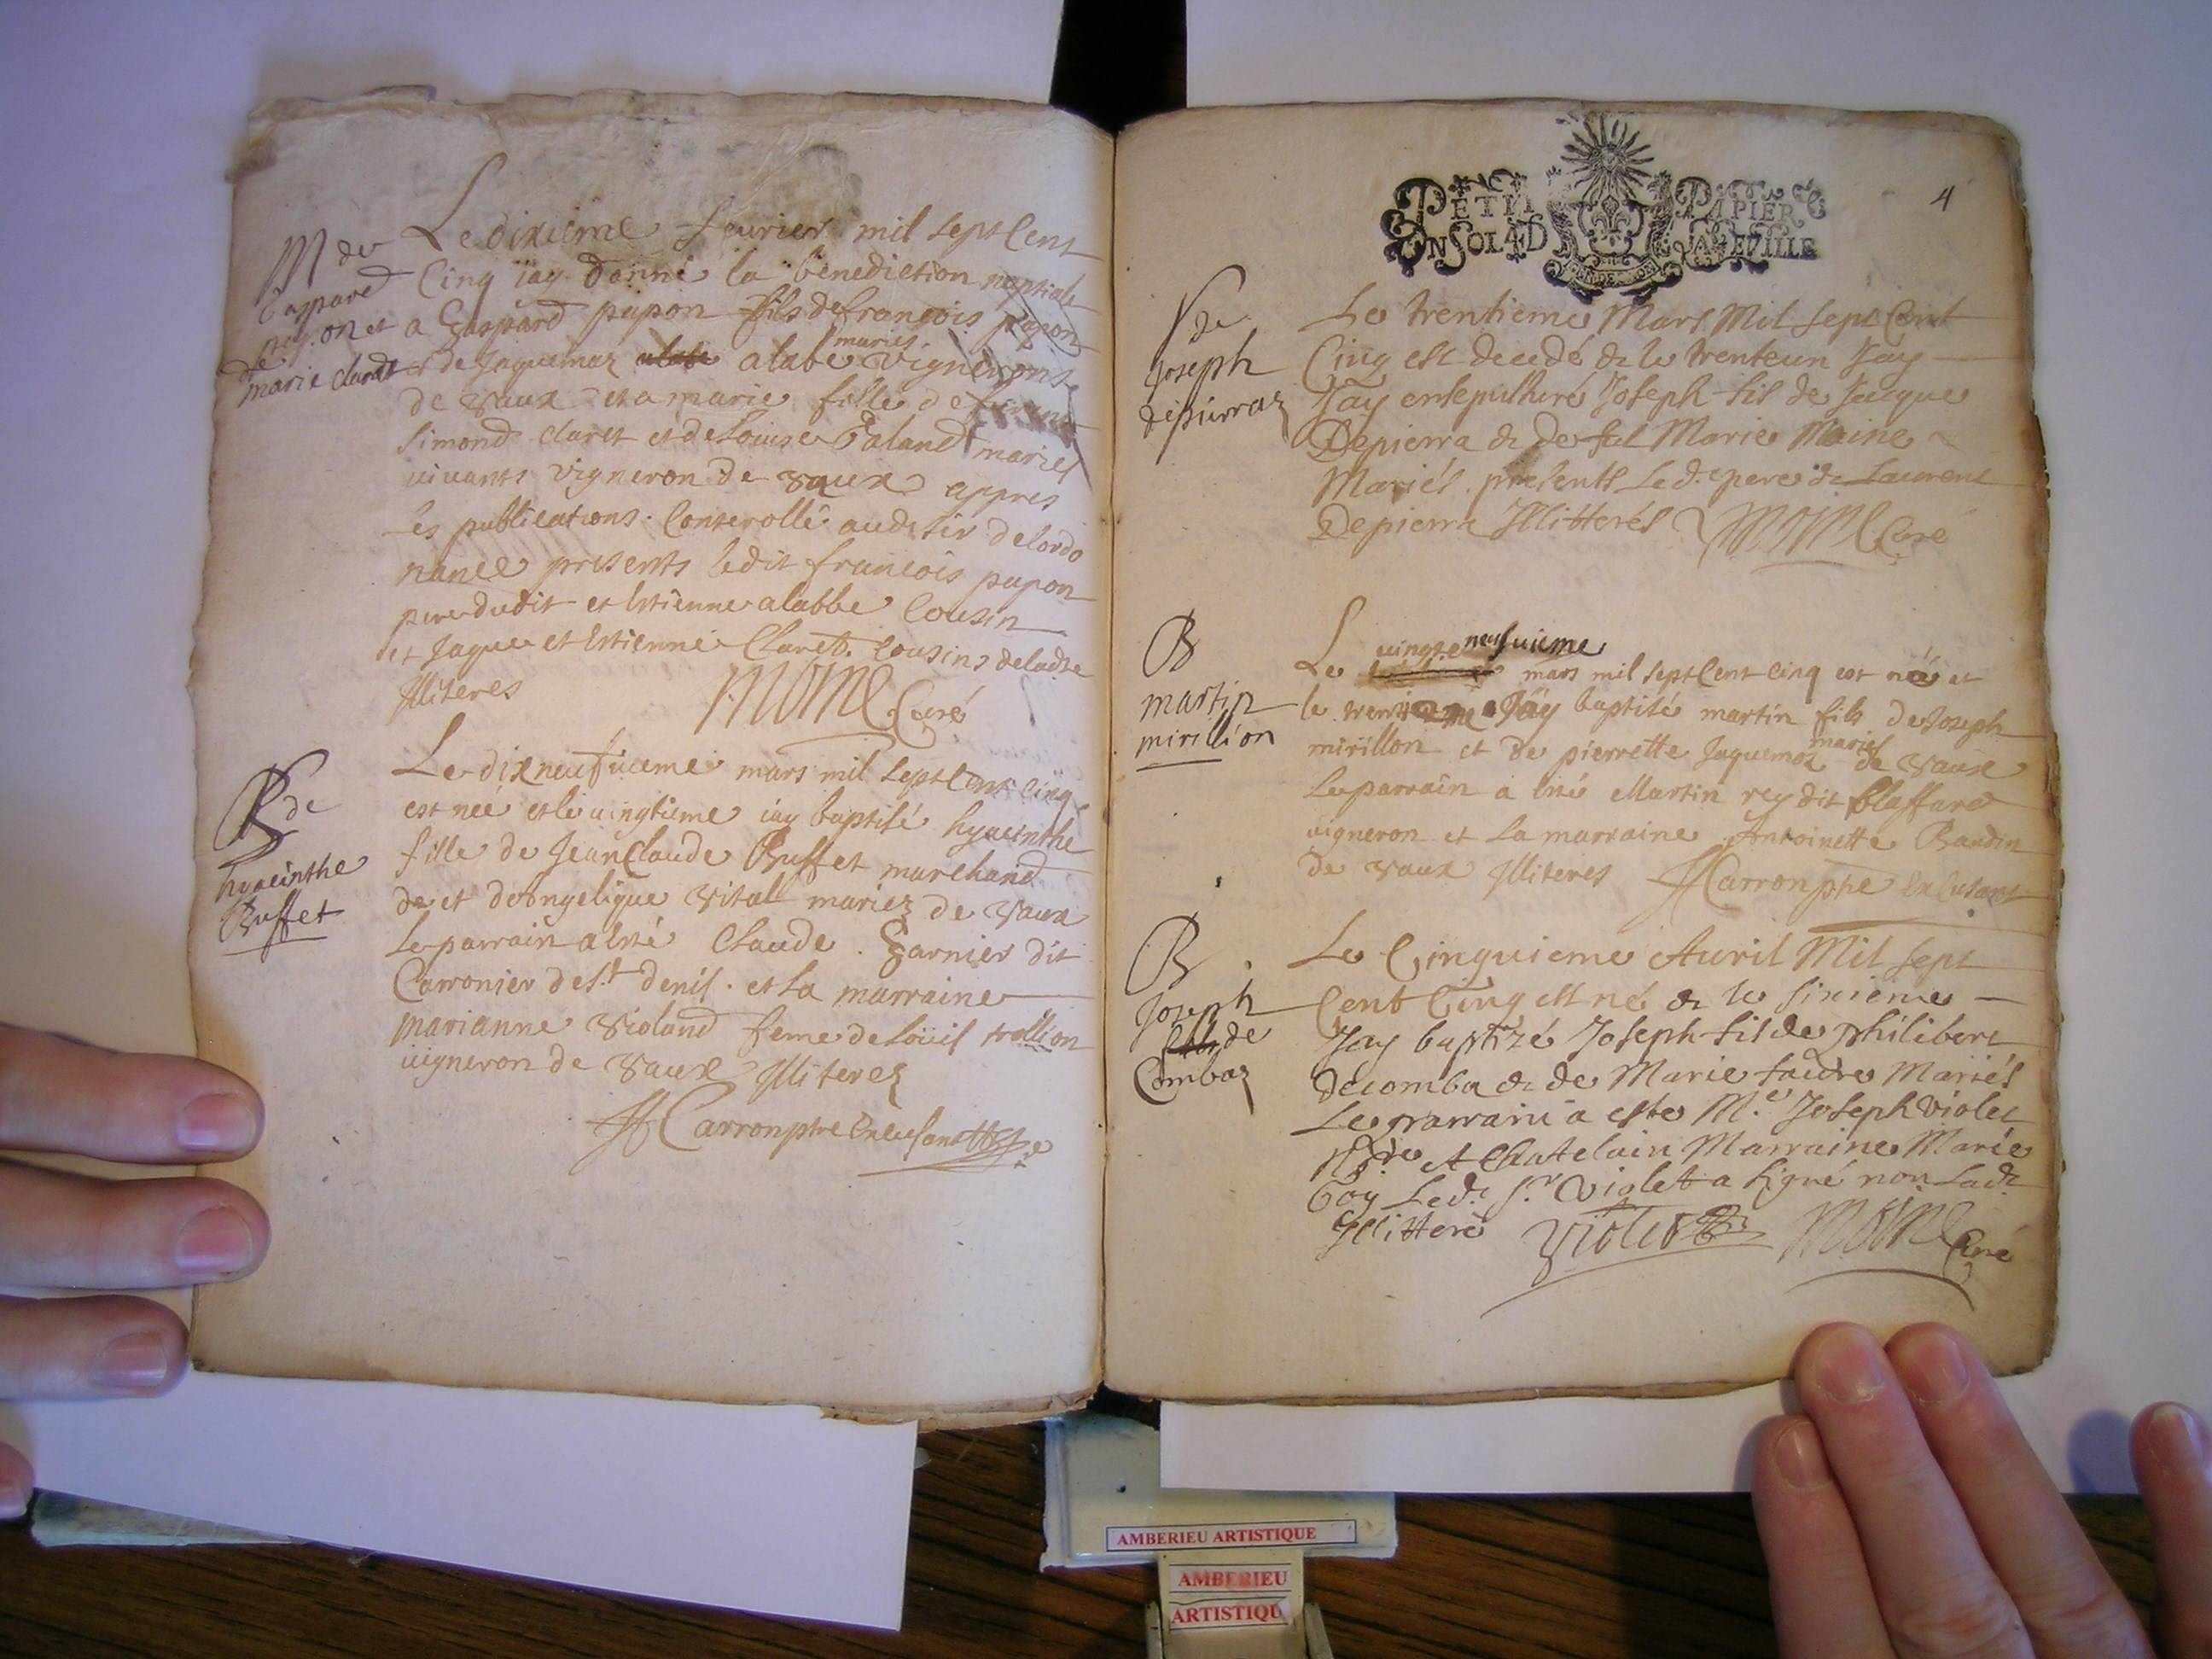 M de
Gaspard
papon et
de
marie claret
Le dixieme feuvrier mil sept Cent
Cinq iay donné la benediction nuptiale
a Gaspard papon fils de françois papon
et de Jaquemaz alabe maries vignerons
de vaux et a marie fille de
Simond claret et de Louise Galand maries
vivants vigneron de vaux appres
les publications Conterollé au desir de lordo
nance presents ledit francois papon
pere dudit et Estienne alabbe Cousin
et Jaque et Estienne Claret cousins deladte
Illiteres MOINE Curé
B de
hyacinthe
Buffet
Le dixneufuieme mars mil sept Cent cinq
est neé et le vingtieme iay baptisé hyacinthe
fille de Jean Claude Buffet marchand
de et de Angelique Vital mariez de vaux
le parrain a esté Claude Garnier dit
Carronier de St denis et la marraine
marianne Violand feme de Loüis trollion
vigneron de vaux Illiterez
Carron ptre
PETIT PAPIER
UN SOL 4 D LA FEUILLE
4
S de
Joseph
depierraz
Le trentieme Mars Mil Sept Cent
Cinq est decedé & le trenteun Jay
Jay ensepulturé Joseph fils de Jacque
Depierra & de fut Marie Moine
Mariés presents Led. pere & Laurent
Depierra Illitterés MOINE Curé
B
martin
mirillion
Le vingte neufuieme mars mil sept Cent cinq est né et
le trentieme Jay baptisé martin fils de Joseph
mirillon et de pierrette Jaquemoz maries de vaux
Le parrain a esté Martin rey dit blaffard
vigneron et la marraine Antoinette Baudin
de vaux Illiteres Carron ptre
B
Joseph
de
Combaz
Le Cinquieme Auril Mil Sept
Cent Cinq est né & le sixieme
Jay baptizé Joseph fils de Philibert
Decomba & de Marie faivre Mariés
Le parrain a esté M.e Joseph Violet
N.re et Chatelain Marraine Marie
Goy Led. S.r Violet a signé non Lad.
Illitteré Violet MOINE Curé
AMBERIEU ARTISTIQUE
AMBERIEU
ARTISTIQU